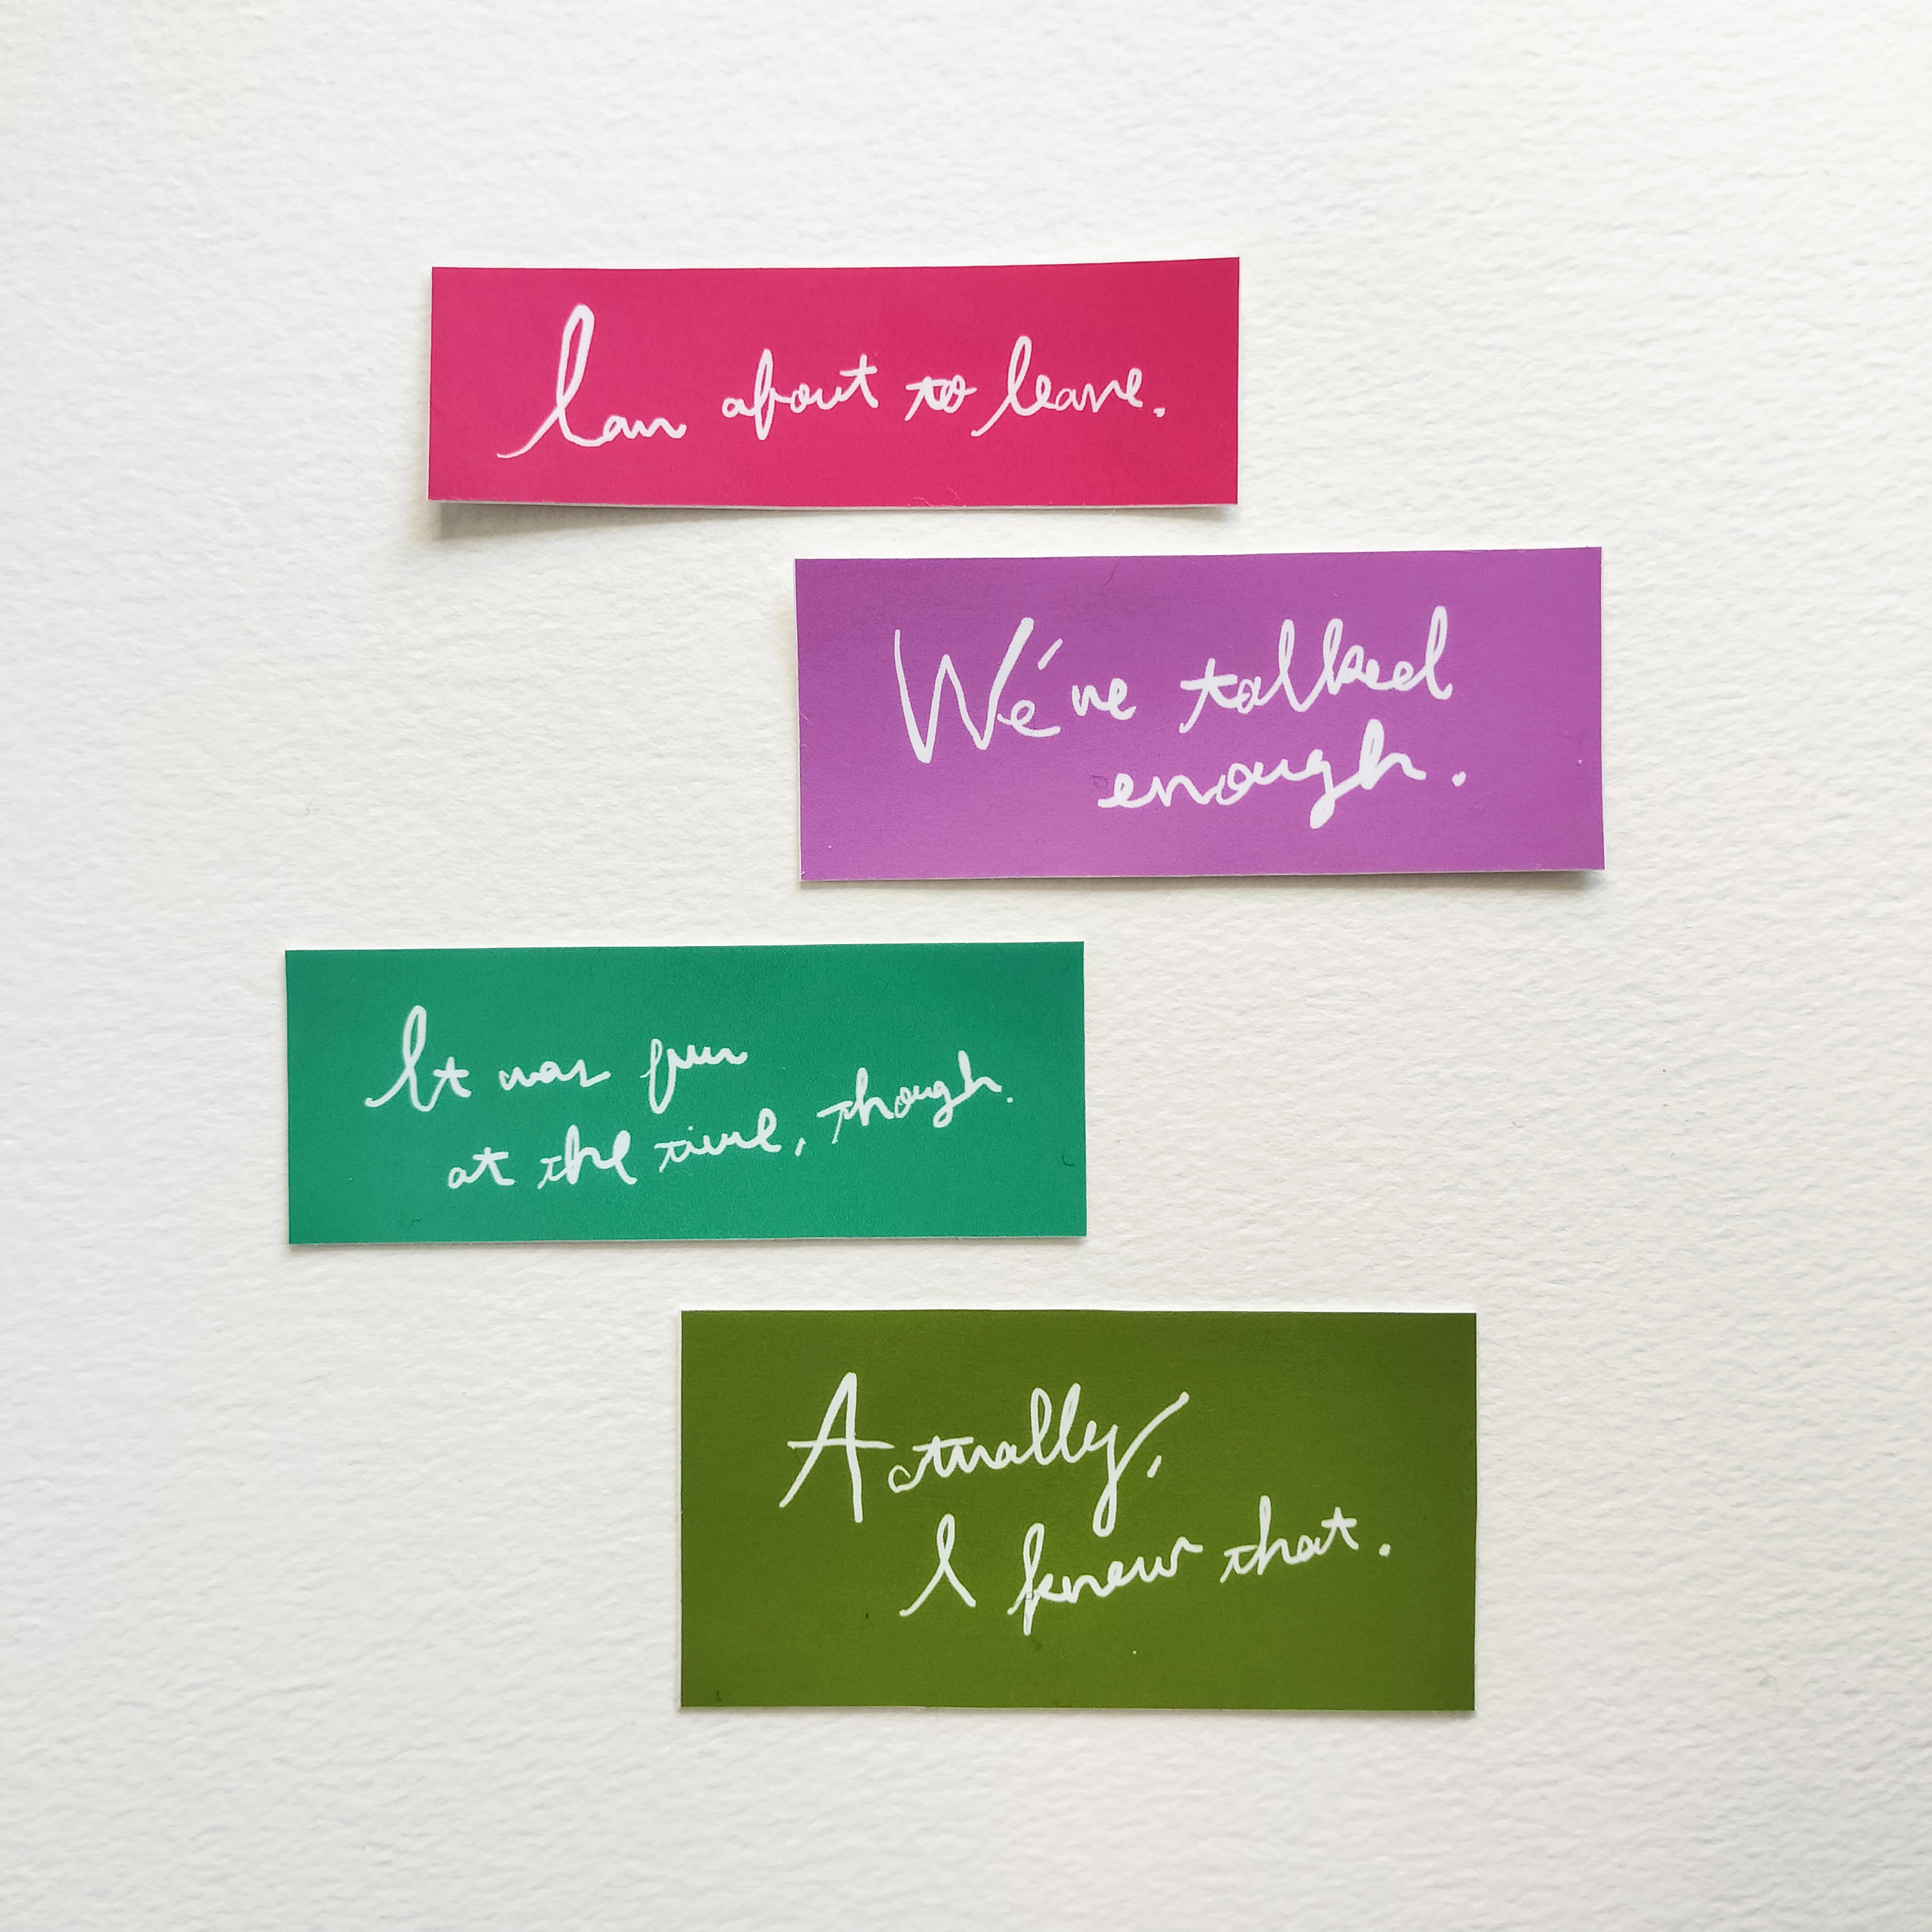 I am about to leave.
We've talked
enough.
It was fun
at the time, though.
Actually,
I knew that.